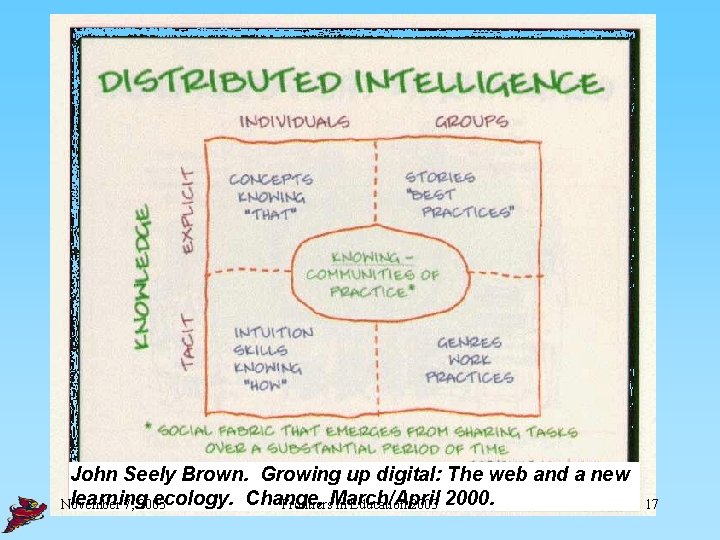 DISTRIBUTED INTELLIGENCE
INDIVIDUALS GROUPS
KNOWLEDGE
EXPLICIT
CONCEPTS
KNOWING
"THAT"
STORIES
"BEST
PRACTICES"
KNOWING -
COMMUNITIES OF
PRACTICE*
TACIT
INTUITION
SKILLS
KNOWING
"HOW"
GENRES
WORK
PRACTICES
* SOCIAL FABRIC THAT EMERGES FROM SHARING TASKS
OVER A SUBSTANTIAL PERIOD OF TIME
John Seely Brown. Growing up digital: The web and a new
learning ecology. Change, March/April 2000.
November 7, 2003 Frontiers in Education 2003 17